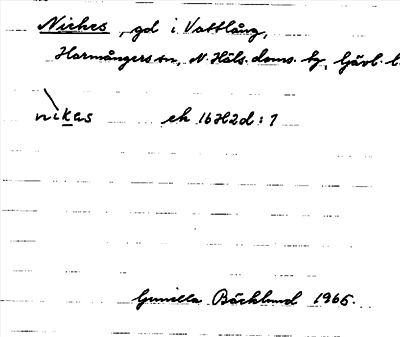 Niches, gd i Vattlång,
Harmångers sn, N. Häls. doms. hg, Gävl. l.
nikas ek 16H2d:7
Gunilla Bäcklund 1965.